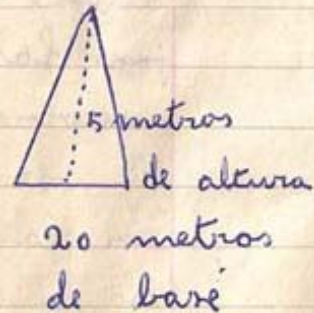 5 metros
de altura
20 metros
de basé